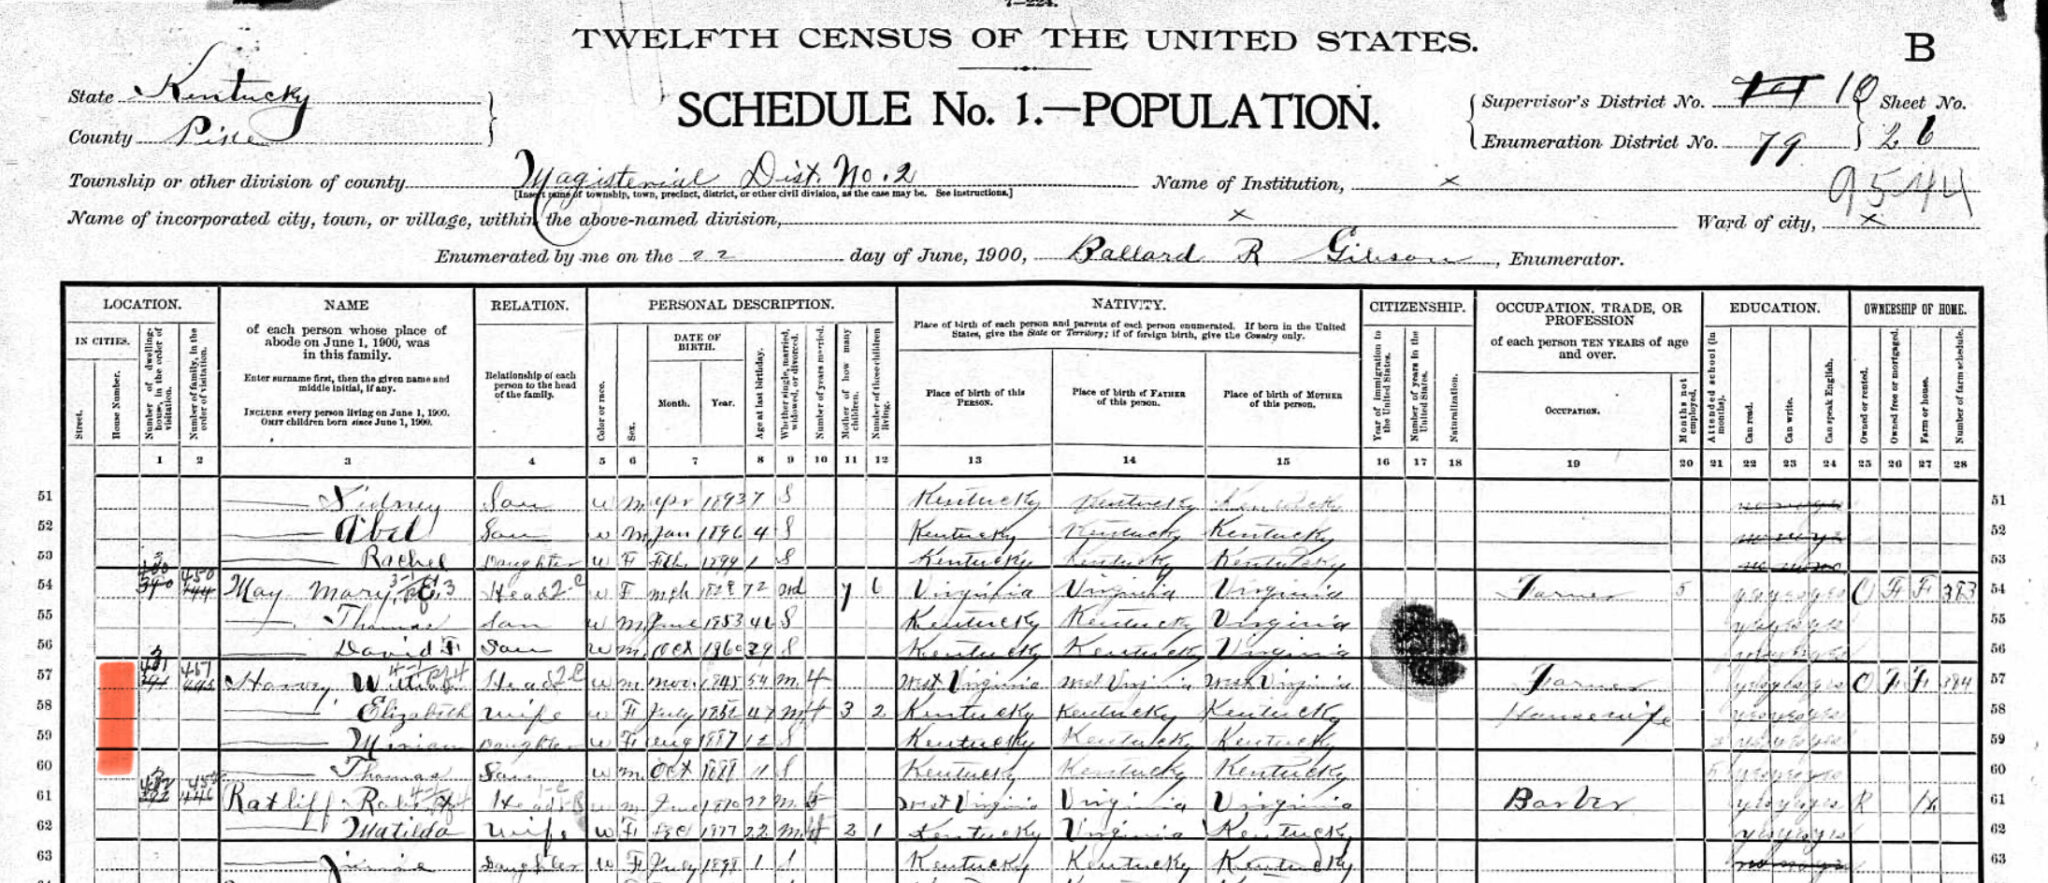 7—224.
TWELFTH CENSUS OF THE UNITED STATES.
B
State Kentucky
County Pike
SCHEDULE No. 1.—POPULATION.
Supervisor's District No. 10
Enumeration District No. 79
Sheet No.
26
9544
Township or other division of county Magisterial Dist. No. 2
[Insert name of township, town, precinct, district, or other civil division, as the case may be. See instructions.]
Name of Institution, x
Name of incorporated city, town, or village, within the above-named division, x
Ward of city, x
Enumerated by me on the 22 day of June, 1900, Ballard R Gibson, Enumerator.
LOCATION. NAME RELATION. PERSONAL DESCRIPTION. NATIVITY. CITIZENSHIP. OCCUPATION, TRADE, OR PROFESSION EDUCATION. OWNERSHIP OF HOME.
IN CITIES.
Street.
House Number.
Number of dwelling-house, in the order of visitation.
Number of family, in the order of visitation.
of each person whose place of abode on June 1, 1900, was in this family.
Enter surname first, then the given name and middle initial, if any.
INCLUDE every person living on June 1, 1900.
OMIT children born since June 1, 1900.
Relationship of each person to the head of the family.
Color or race.
Sex.
DATE OF BIRTH.
Month. Year.
Age at last birthday.
Whether single, married, widowed, or divorced.
Number of years married.
Mother of how many children.
Number of these children living.
Place of birth of each person and parents of each person enumerated. If born in the United States, give the State or Territory; if of foreign birth, give the Country only.
Place of birth of this PERSON.
Place of birth of FATHER of this person.
Place of birth of MOTHER of this person.
Year of immigration to the United States.
Number of years in the United States.
Naturalization.
of each person TEN YEARS of age and over.
OCCUPATION.
Months not employed.
Attended school (in months).
Can read.
Can write.
Can speak English.
Owned or rented.
Owned free or mortgaged.
Farm or house.
Number of farm schedule.
1 2 3 4 5 6 7 8 9 10 11 12 13 14 15 16 17 18 19 20 21 22 23 24 25 26 27 28
51 Sidney Son W M Apr 1893 7 S Kentucky Kentucky Kentucky 51
52 Abel Son W M Jan 1896 4 S Kentucky Kentucky Kentucky 52
53 Rachel Daughter W F Feb 1899 1 S Kentucky Kentucky Kentucky 53
54 May Mary Head W F Mch 1828 72 Wd 7 6 Virginia Virginia Virginia Farmer 5 yes yes yes O F F 383 54
55 Thomas Son W M June 1853 46 S Kentucky Kentucky Virginia yes yes yes 55
56 David F Son W M Oct 1860 39 S Kentucky Kentucky Virginia yes yes yes 56
57 Harvey Head W M Nov. 1845 54 M 4 West Virginia West Virginia West Virginia Farmer yes yes yes O F F 384 57
58 Elizabeth Wife W F July 1852 47 M 4 3 2 Kentucky Kentucky Kentucky Housewife yes yes yes 58
59 Daughter W F Aug 1887 12 S Kentucky Kentucky Kentucky yes yes yes 59
60 Thomas Son W M Oct 1888 11 S Kentucky Kentucky Kentucky 5 yes yes yes 60
61 Ratliff Head W M June M 5 West Virginia Virginia Virginia Barber yes yes yes R H 61
62 Matilda Wife W F Dec 1877 22 M 2 1 Kentucky Virginia Kentucky yes yes yes 62
63 Daughter W F July 1898 1 S Kentucky Kentucky Kentucky 63